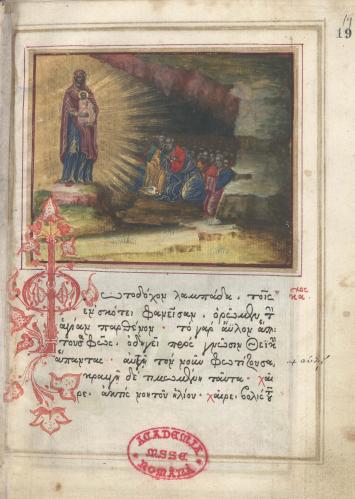 19
Φωτοδόχον λαμπάδα. τοῖς
ἐν σκότει φανεῖσαν. ὁρῶμεν τὴν
ἁγίαν παρθένον · τὸ γὰρ ἄϋλον ἅπ
τουσα φῶς. ὁδηγεῖ πρὸς γνῶσιν θεϊκὴν
ἅπαντας. αὐγῇ τὸν νοῦν φωτίζουσα,
κραυγῇ δὲ τιμωμένη ταῦτα · χαῖ
ρε, ἀκτὶς νοητοῦ ἡλίου · χαῖρε, βολὶς τοῦ
ACADEMIA
MSSE
ROMÂNĂ